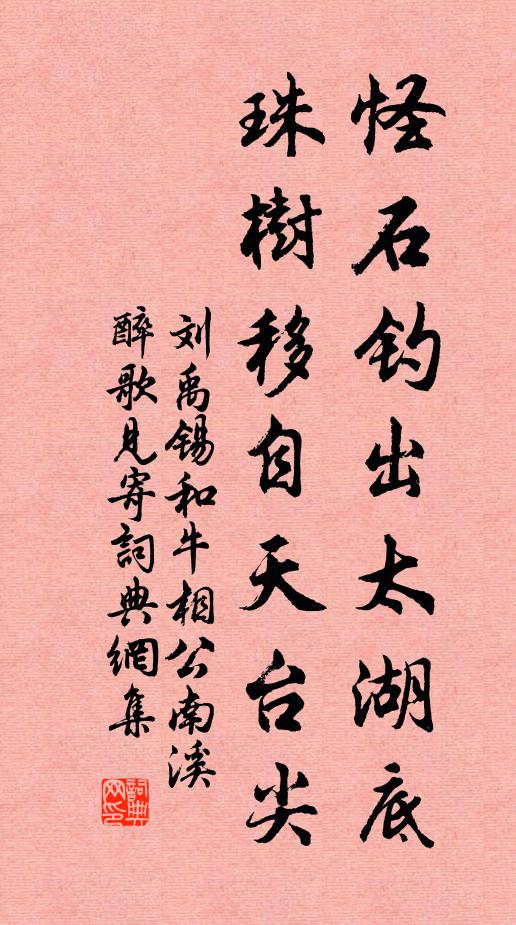 怪石钓出太湖底
珠樹移自天台尖
刘禹锡和牛相公南溪
醉歌見寄詞典網集
詞典
网印